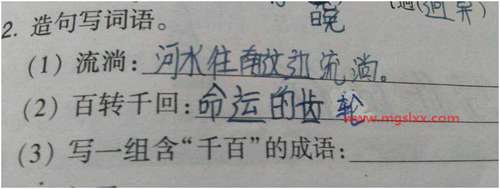 晓 (迥 呆)
2. 造句写词语。
(1) 流淌：河水往南放流淌。
(2) 百转千回：命运的齿轮
www.mgslxx.com
(3) 写一组含“千百”的成语：